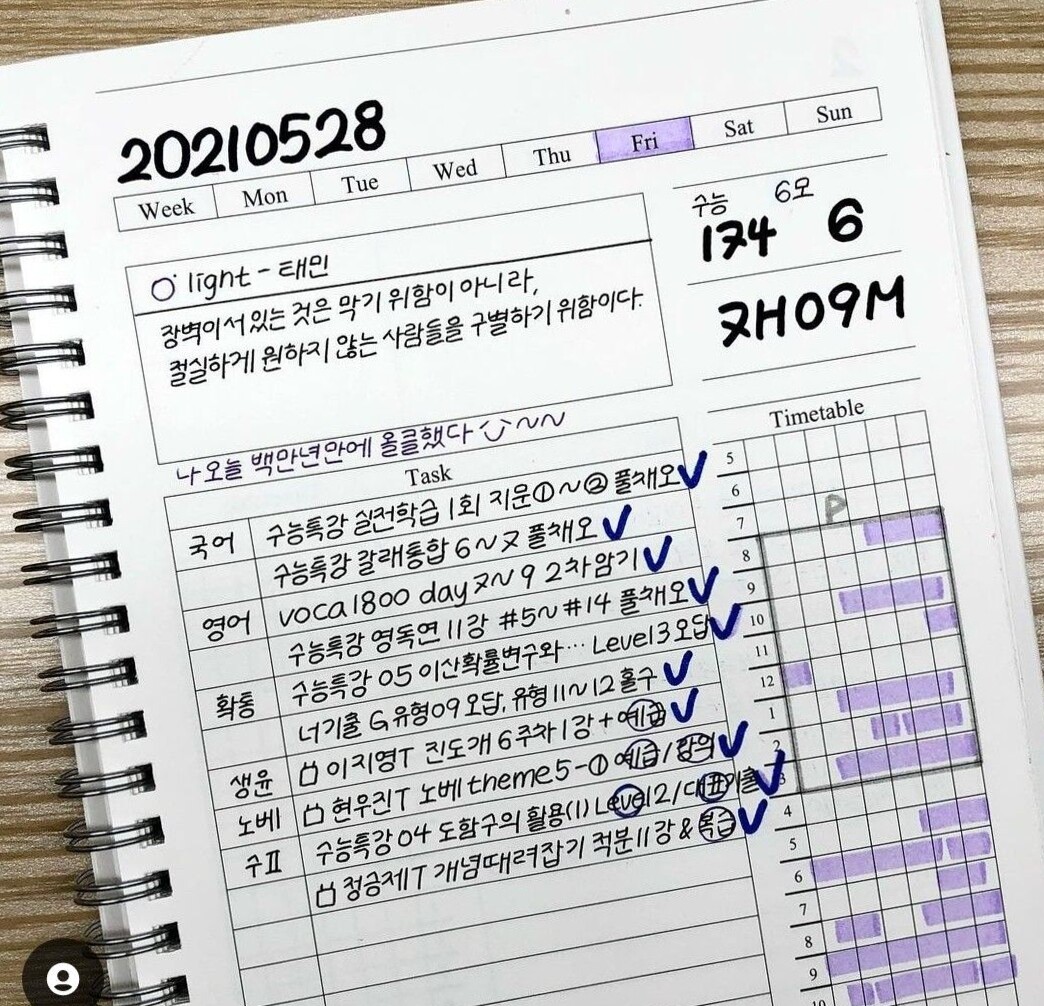 20210528
Week Mon Tue Wed Thu Fri Sat Sun
수능 6모
174 6
7H09M
light - 태민
장벽이 서있는 것은 막기 위함이 아니라,
절실하게 원하지 않는 사람들을 구별하기 위함이다.
나 오늘 백만년만에 올클했다 ~~
Task
국어 수능특강 실전학습 1회 지문①~② 풀채오
수능특강 갈래통합 6~7 풀채오
영어 voca1800 day 7~9 2차암기
수능특강 영독연 11강 #5~#14 풀채오
확통 수능특강 05 이산확률변수와… Level3 오답
너기출 G 유형09 오답, 유형 11~12 홀수
생윤 이지영T 진도개 6주차 1강 + 예습
노베 현우진T 노베 theme5-① 예습/강의
수Ⅱ 수능특강 04 도함수의 활용(1) Level2/대표기출
정승제T 개념때려잡기 적분 11강 & 복습
Timetable
5
6
P
7
8
9
10
11
12
1
2
3
4
5
6
7
8
9
10